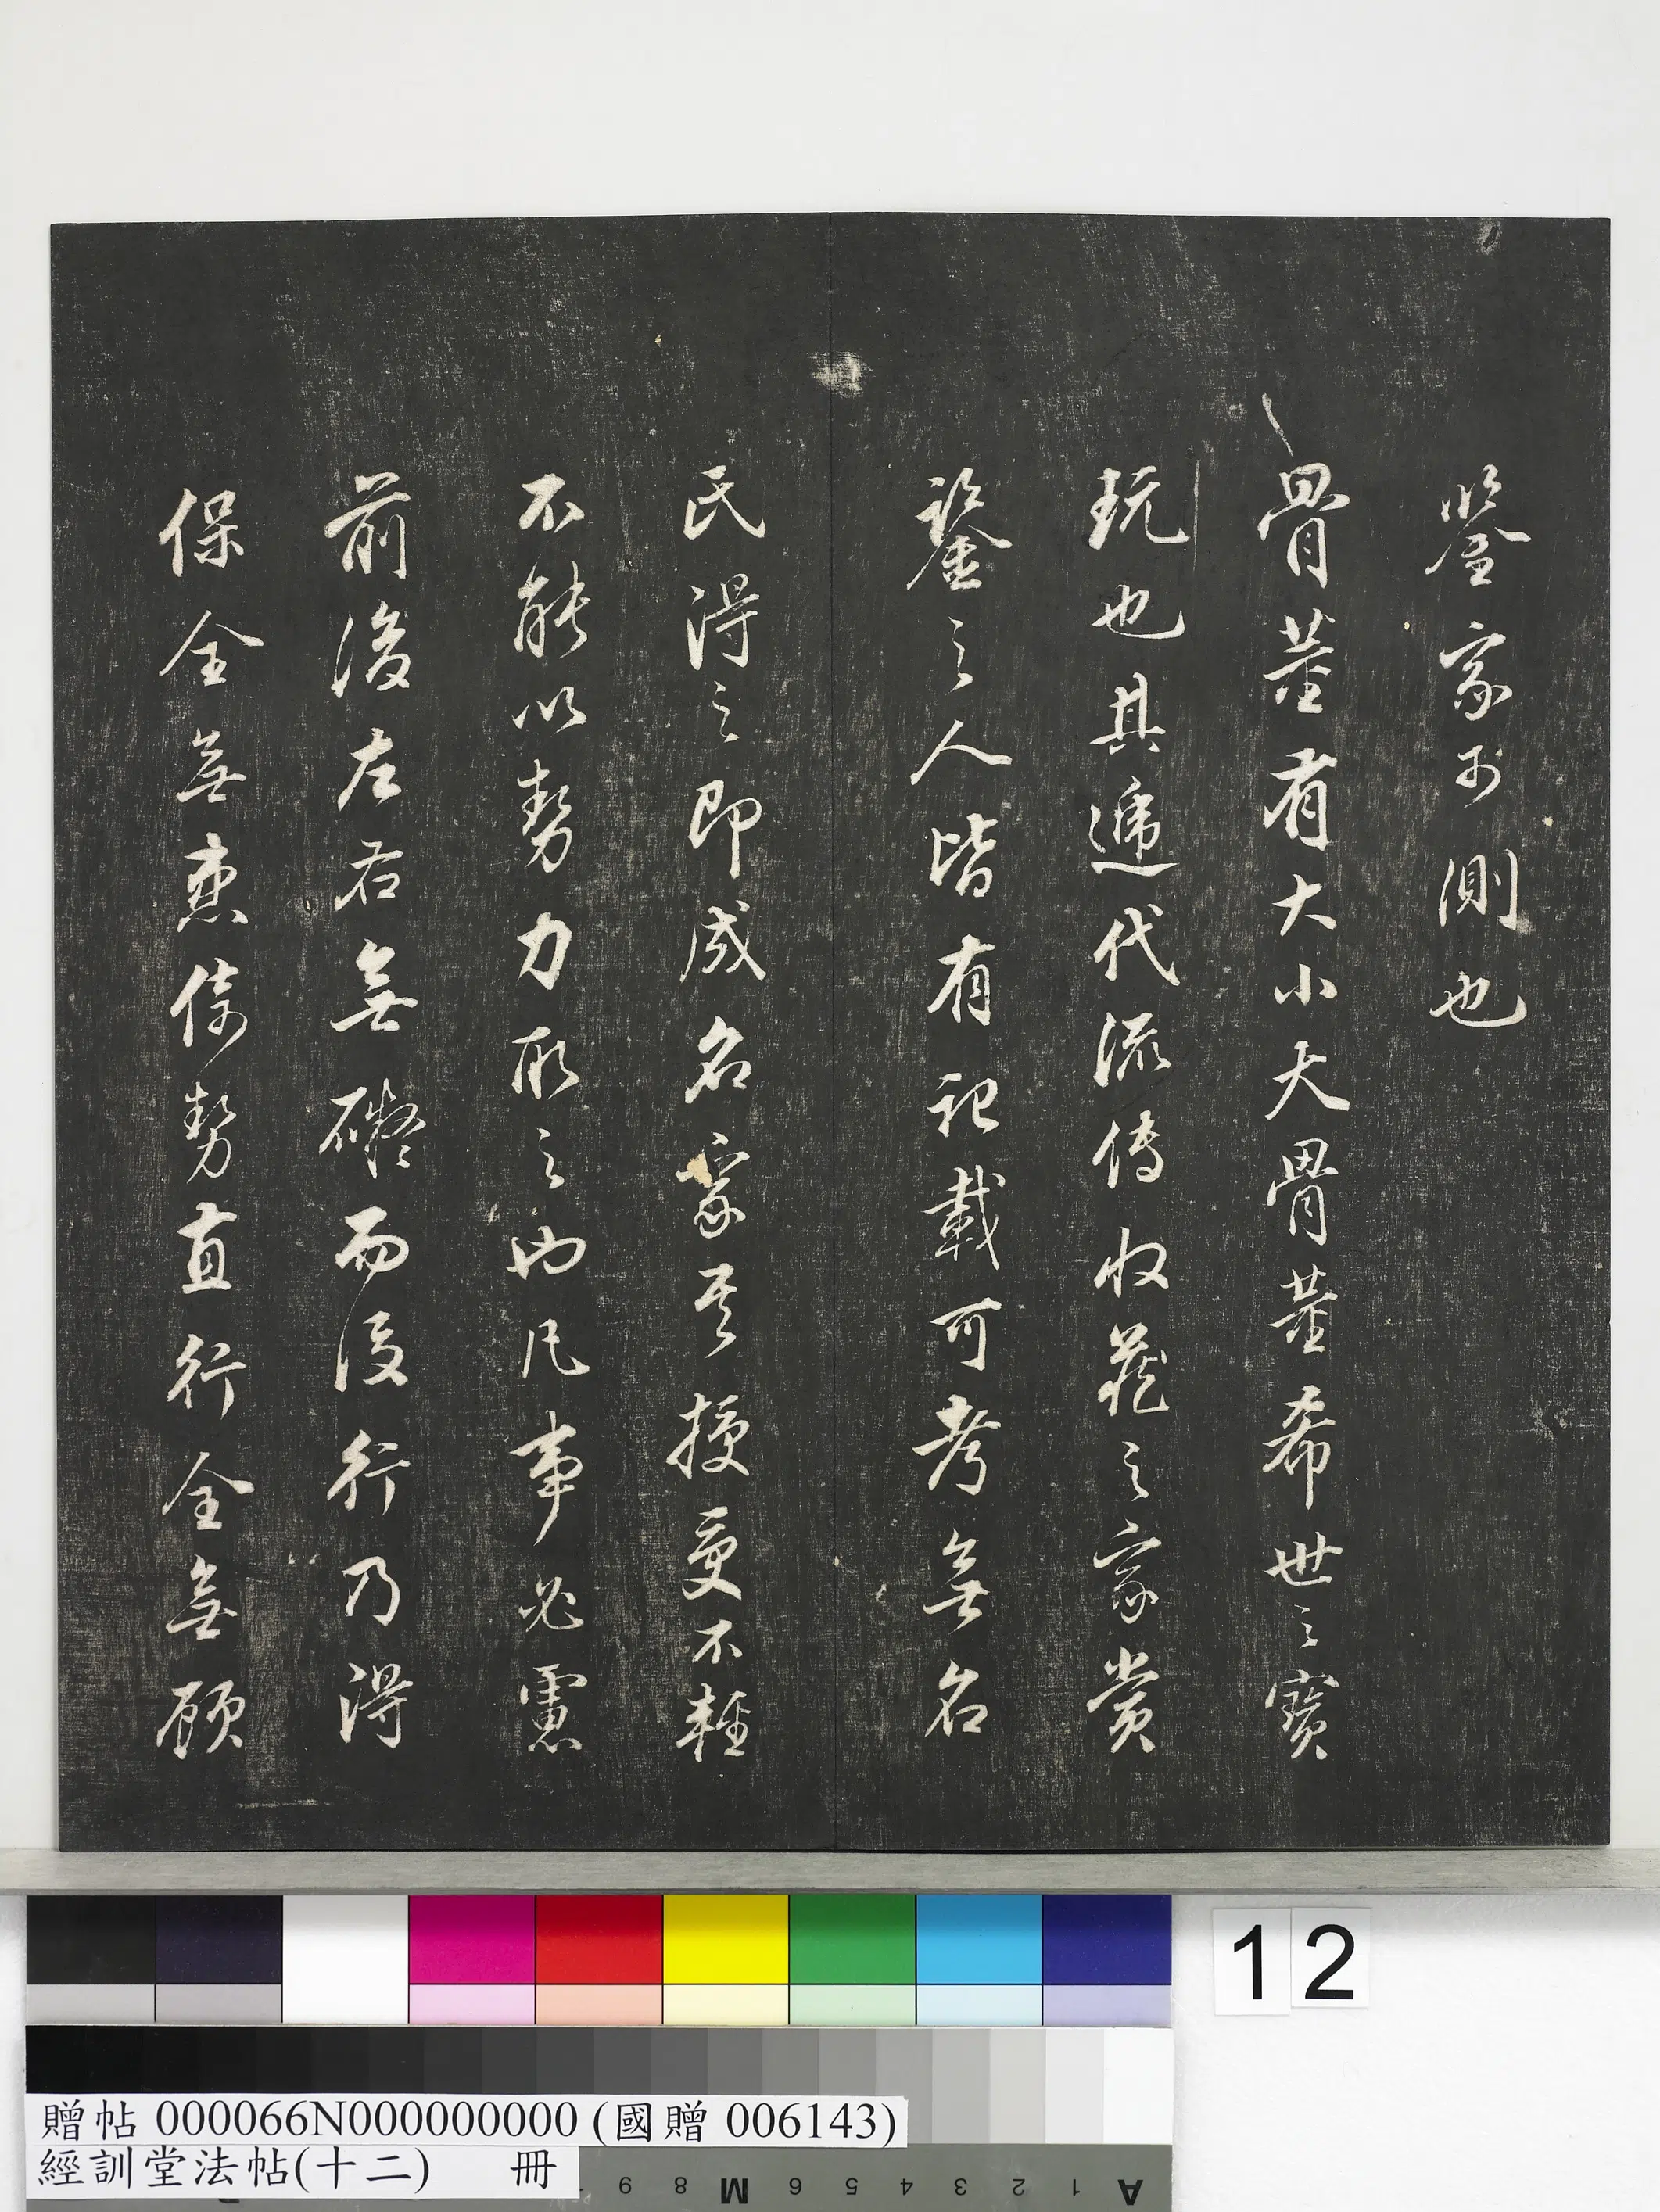 鑒家可測也
骨董有大小大骨董希世之寶
玩也其遞代流傳收藏之家賞
鑒之人皆有記載可考無名
氏得之即成名家其授受不輕
不能以勢力取之也凡事必慮
前後左右無礙而後行乃得
保全無患倚勢直行全無顧
12
贈帖 000066N000000000 (國贈 006143)
經訓堂法帖(十二) 冊
9 8 M 6 5 4 3 2 1 A